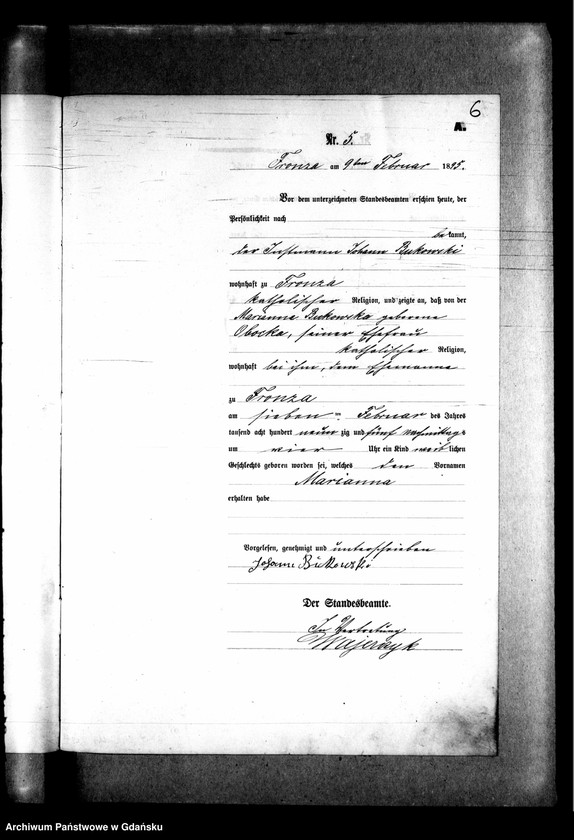 6
A.
Nr. 5.
Fronza am 9ten Februar 1895.
Vor dem unterzeichneten Standesbeamten erschien heute, der
Persönlichkeit nach
bekannt,
der Instmann Johann Bukowski
wohnhaft zu Fronza
katholischer Religion, und zeigte an, daß von der
Marianna Bukowska geborene
Obocka, seiner Ehefrau
katholischer Religion,
wohnhaft bei ihm, dem Ehemanne
zu Fronza
am sieben ten Februar des Jahres
tausend acht hundert neunzig und fünf nachmittags
um vier Uhr ein Kind weiblichen
Geschlechts geboren worden sei, welches den Vornamen
Marianna
erhalten habe
Vorgelesen, genehmigt und unterschrieben
Johann Bukowski
Der Standesbeamte.
In Vertretung
Archiwum Państwowe w Gdańsku